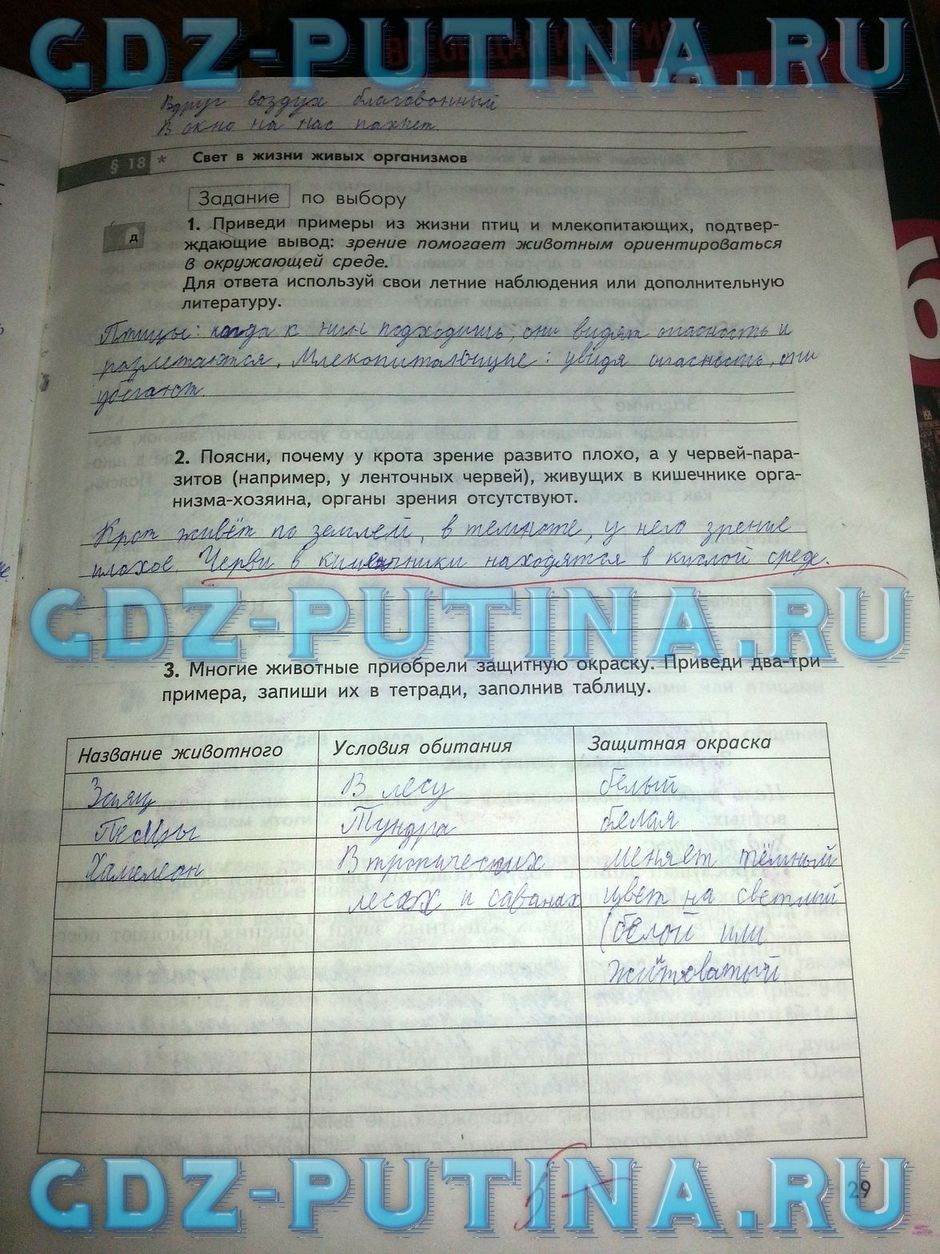 GDZ-PUTINA.RU
Вдруг воздух благовонный
В окно на нас пахнет.
§ 18 * Свет в жизни живых организмов
Задание по выбору
д
1. Приведи примеры из жизни птиц и млекопитающих, подтвер-
ждающие вывод: зрение помогает животным ориентироваться
в окружающей среде.
Для ответа используй свои летние наблюдения или дополнительную
литературу.
Птицы: когда к ним подходишь, они видят опасность и
разлетаются. Млекопитающие: увидя опасность, они
убегают.
2. Поясни, почему у крота зрение развито плохо, а у червей-пара-
зитов (например, у ленточных червей), живущих в кишечнике орга-
низма-хозяина, органы зрения отсутствуют.
Крот живёт по землей, в темноте, у него зрение
плохое Черви в кишечники находятся в кислой среде.
GDZ-PUTINA.RU
3. Многие животные приобрели защитную окраску. Приведи два-три
примера, запиши их в тетради, заполнив таблицу.
Название животного Условия обитания Защитная окраска
Заяц В лесу белый
Песцы Тундра белая
Хамелеон В тропических меняет тёмный
лесах и саванах цвет на светлый
(белой или
желтоватый
29
GDZ-PUTINA.RU